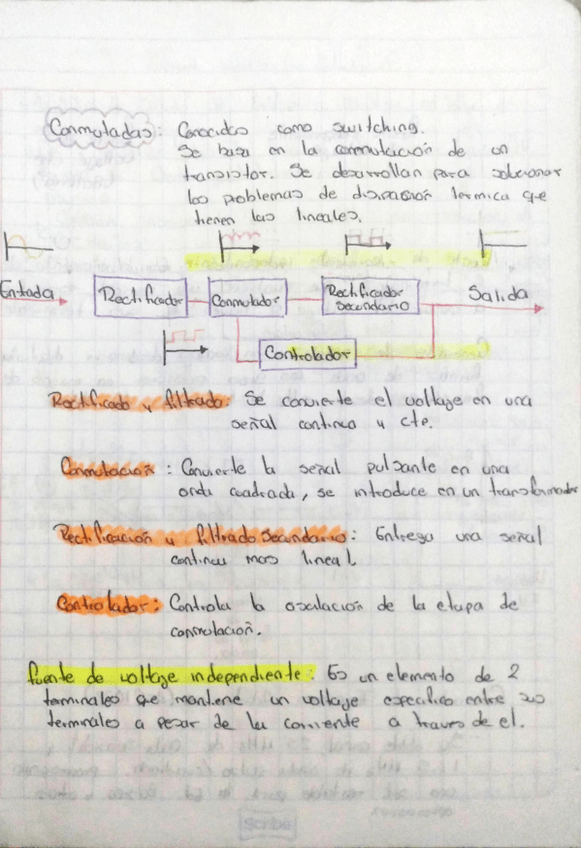 Conmutadas: Conocidos como switching.
Se basa en la conmutación de un
transistor. Se desarrollan para solucionar
los problemas de disipasión termica que
tienen las lineales.
Entrada Rectificador Conmutador Rectificador Secundario Salida
Controlador
Rectificado y filtrado: Se convierte el voltaje en una
señal continua y cte.
Conmutación: Convierte la señal pulsante en una
onda cuadrada, se introduce en un transformador
Rectificación y filtrado secundario: Entrega una señal
continua mas lineal
Controlador: Controla la oscilación de la etapa de
conmutación.
fuente de voltaje independiente: Es un elemento de 2
terminales que mantiene un voltaje especifico entre sus
terminales a pesar de la corriente a traves de el.
scribe